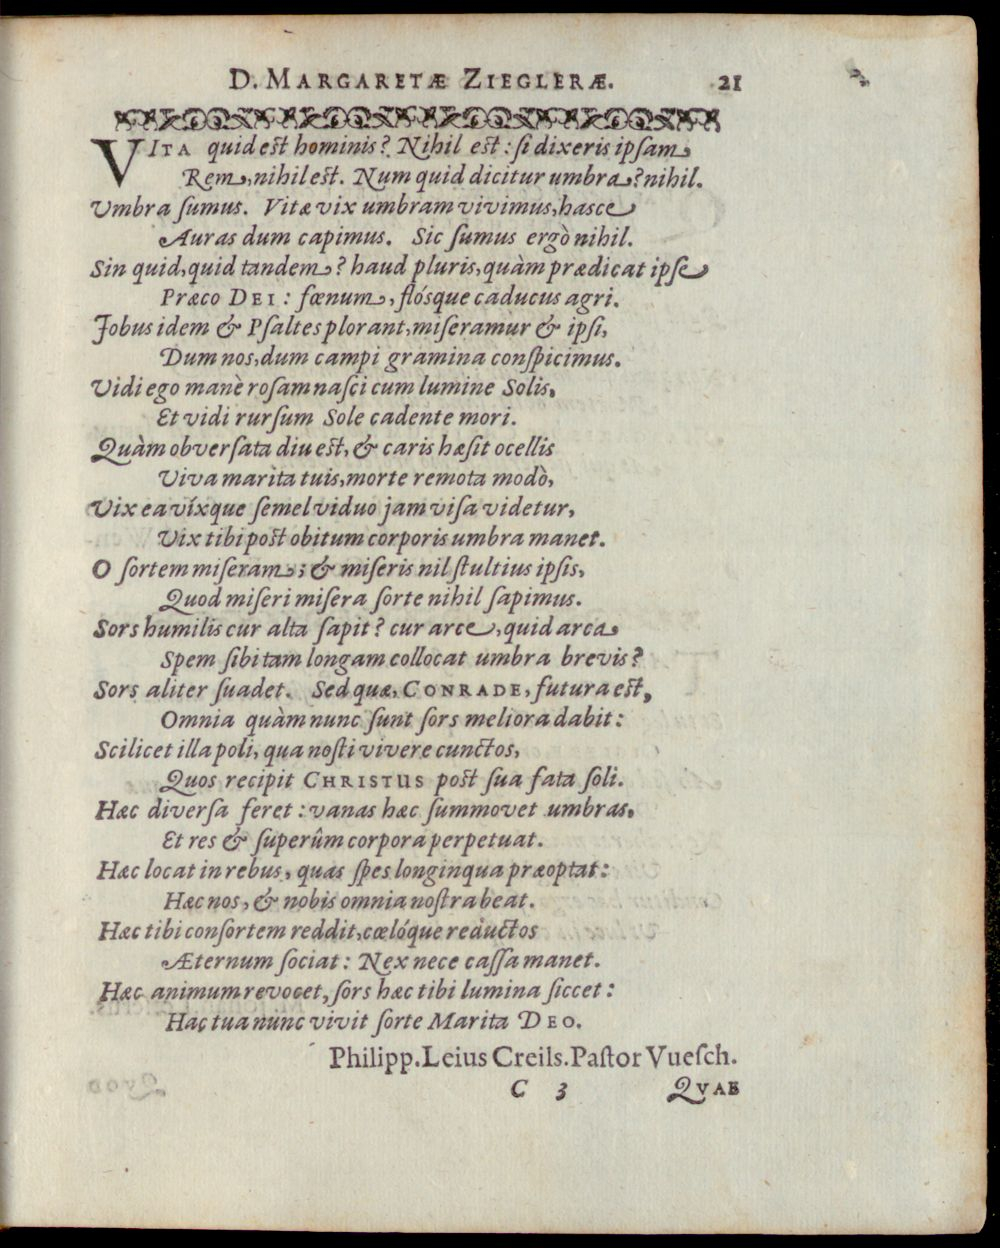 D. MARGARETÆ ZIEGLERÆ. 21
VITA quid est hominis? Nihil est: si dixeris ipsam
Rem, nihil est. Num quid dicitur umbra? nihil.
Umbra sumus. Vitæ vix umbram vivimus, hasce
Auras dum capimus. Sic sumus ergò nihil.
Sin quid, quid tandem? haud pluris, quàm prædicat ipse
Præco DEI: fœnum, flósque caducus agri.
Jobus idem & Psaltes plorant, miseramur & ipsi,
Dum nos, dum campi gramina conspicimus.
Vidi ego manè rosam nasci cum lumine Solis,
Et vidi rursum Sole cadente mori.
Quàm obversata diu est, & caris hæsit ocellis
Viva marita tuis, morte remota modò,
Vix ea víxque semel viduo jam visa videtur,
Vix tibi post obitum corporis umbra manet.
O sortem miseram; & miseris nil stultius ipsis,
Quod miseri misera sorte nihil sapimus.
Sors humilis cur alta sapit? cur arce, quid arca
Spem sibi tam longam collocat umbra brevis?
Sors aliter suadet. Sed quæ, CONRADE, futura est,
Omnia quàm nunc sunt sors meliora dabit:
Scilicet illa poli, qua nosti vivere cunctos,
Quos recipit CHRISTUS post sua fata soli.
Hæc diversa feret: vanas hæc summovet umbras,
Et res & superûm corpora perpetuat.
Hæc locat in rebus, quas spes longinqua præoptat:
Hæc nos, & nobis omnia nostra beat.
Hæc tibi consortem reddit, cœlóque reductos
Æternum sociat: Nex nece cassa manet.
Hæc animum revocet, sors hæc tibi lumina siccet:
Hac tua nunc vivit sorte Marita DEO.
Philipp. Leius Creils. Pastor Vuesch.
C 3 QVAE